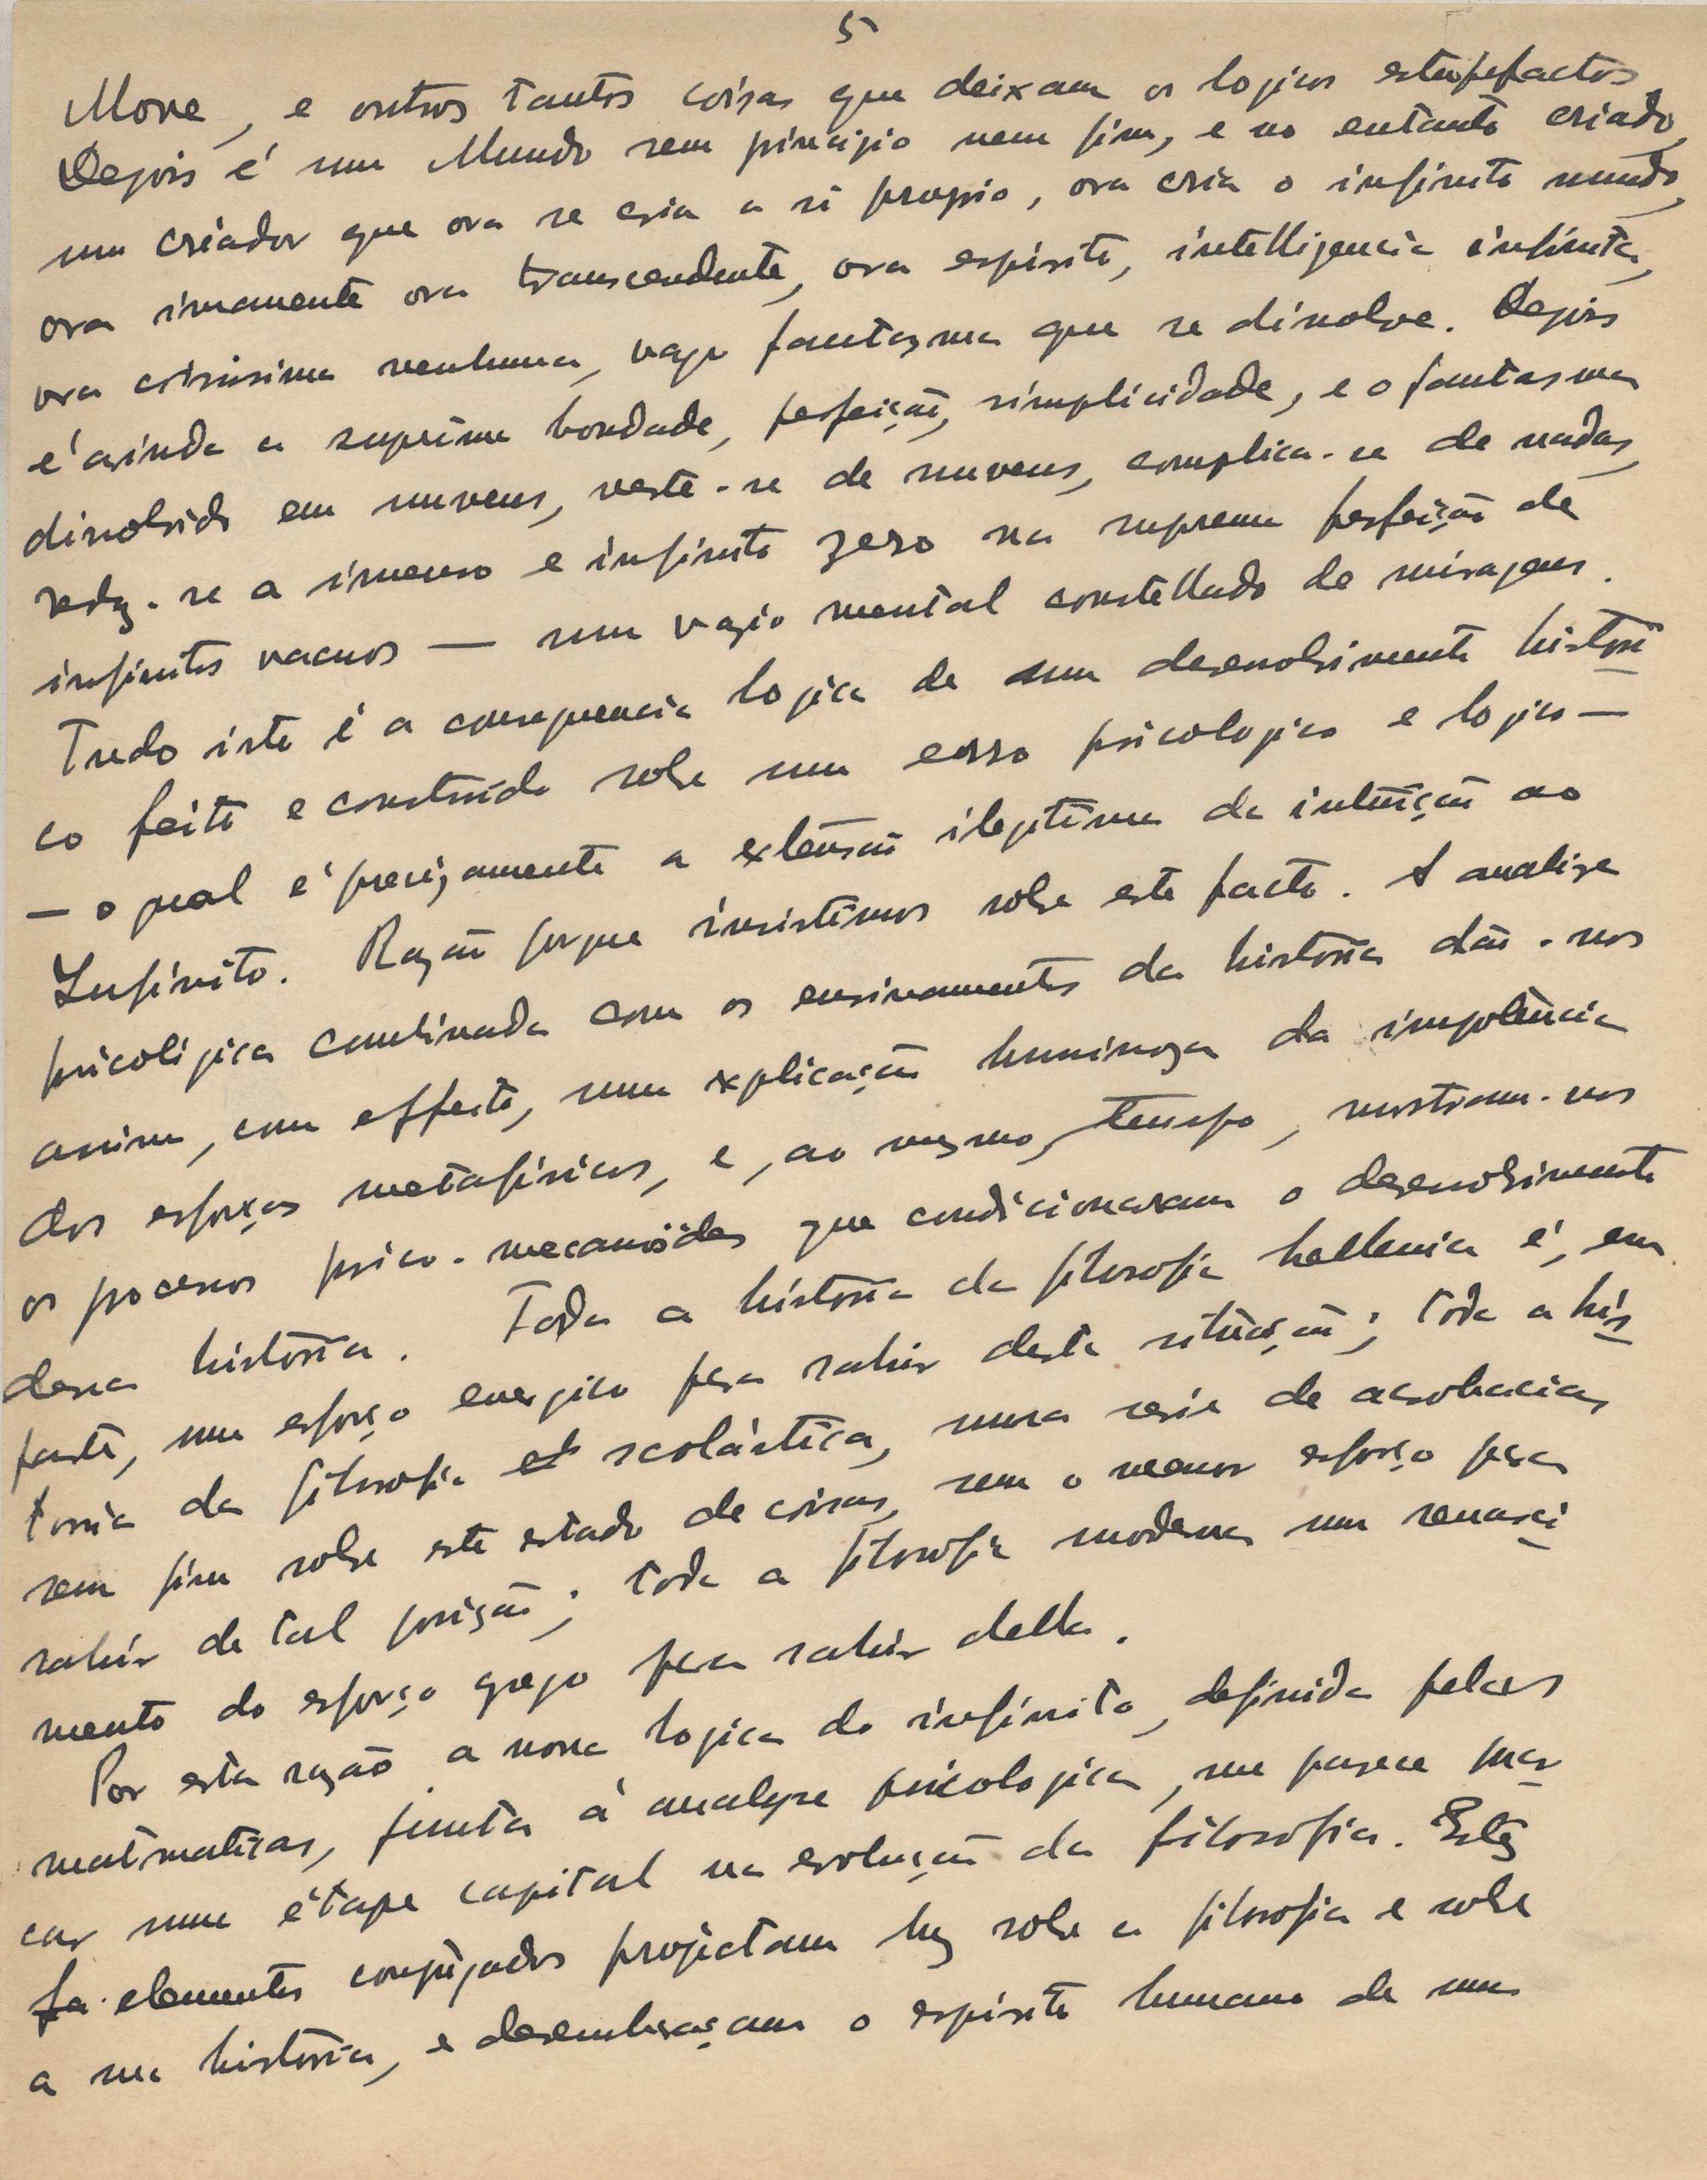 5
Move, e outros tantos coisas que deixam os logicos estupefactos
Depois é um Mundo sem principio nem fim, e no entanto criado,
um criador que ora se cria a si proprio, ora cria o infinito mundo,
ora imanente ora transcendente, ora espirito, intelligencia infinita,
ora coisissima nenhuma, vago fantasma que se dissolve. Depois
é ainda a suprema bondade, perfeição, simplicidade, e o fantasma
dissolvido em nuvens, veste-se de nuvens, complica-se de nadas,
reduz-se a imenso e infinito zero na suprema perfeição de
infinitos vacuos — um vazio mental constellado de miragens.
Tudo isto é a consequencia logica de um desenvolvimento histori
co feito e construido sobre um erro psicologico e logico —
— o qual é precizamente a extensão ilegitima da intuição ao
Infinito. Razão porque insistimos sobre este facto. A analize
psicologica combinada com os ensinamentos da historia dão-nos
assim, com effeito, uma explicação luminoza da impotência
dos esforços metafisicos, e, ao mesmo tempo, mostram-nos
os processos psico-mecanoïdes que condicionaram o desenvolvimento
dessa historia. Toda a historia da filosofia hellenica é, em
parte, um esforço energico para sahir desta situação; toda a his
toria da filosofia scolástica, uma serie de acrobacias
sem fim sobre este estado de coisas, sem o menor esforço para
sahir de tal posição; toda a filosofia moderna um renasci
mento do esforço grego para sahir della.
Por esta razão a nova logica do infinito, definida pelas
matematicas, junta à analyse psicologica, me parece mar
car uma étape capital na evolução da filosofia. Estes
elementos conjugados projectam luz sobre a filosofia e sobre
a sua historia, e desembaraçam o espirito humano de uma